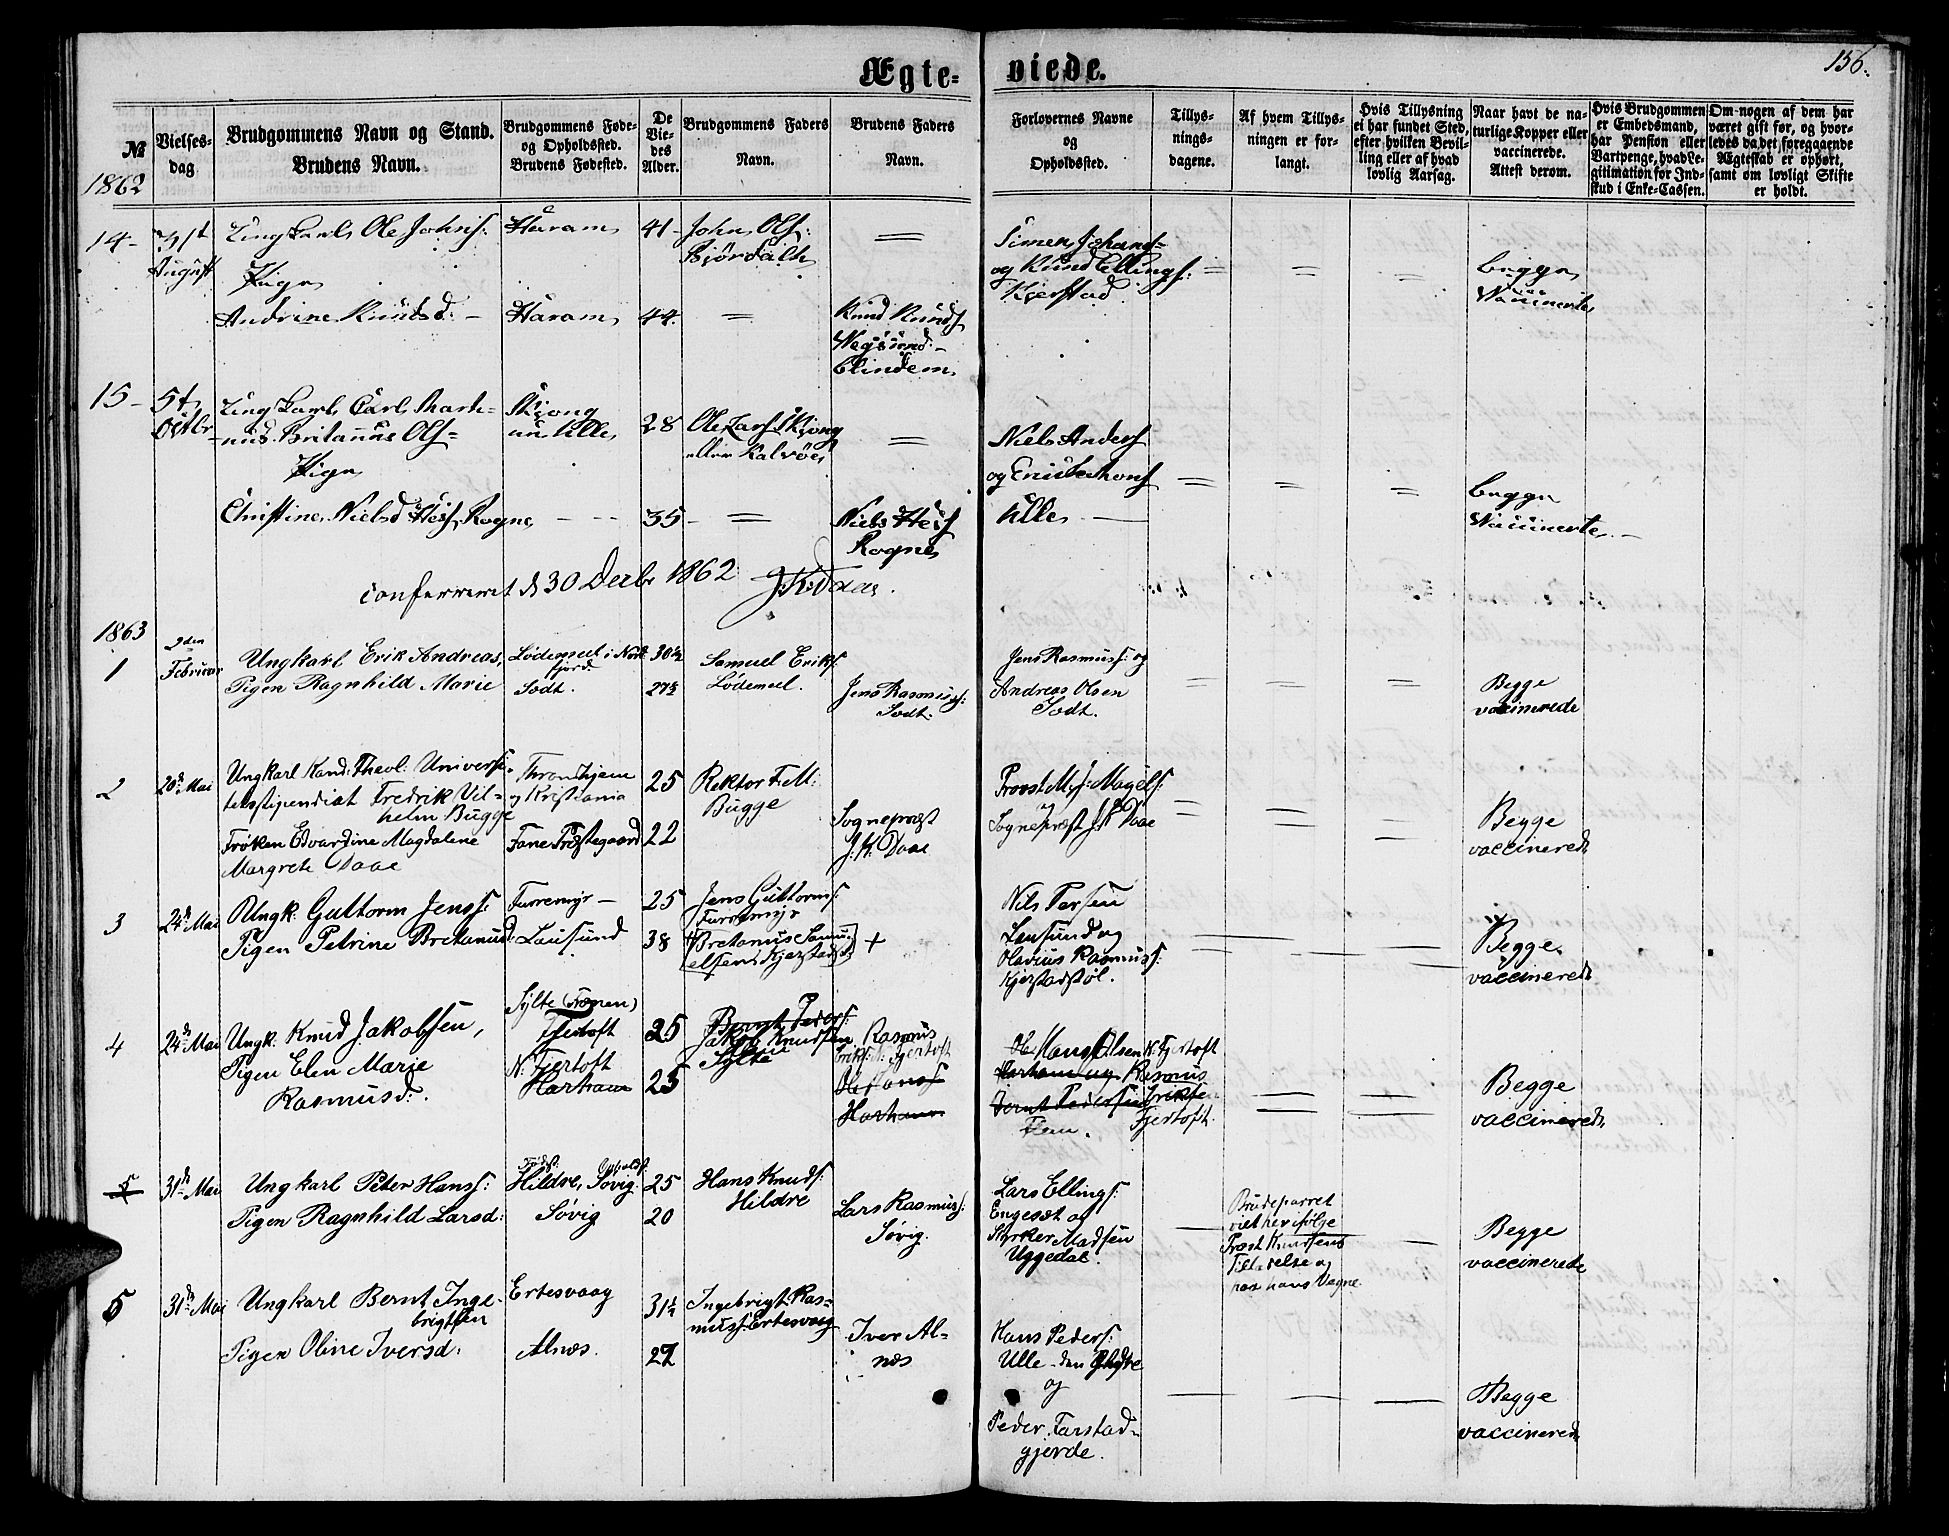 Ægte-
viede.
156.
№
Vielses-
dag
Brudgommens Navn og Stand.
Brudens Navn.
Brudgommens Føde-
og Opholdssted.
Brudens Fødested.
De
Vie-
des
Alder.
Brudgommens Faders
Navn.
Brudens Faders
Navn.
Forlovernes Navne
og
Opholdssted.
Tillys-
nings-
dagene.
Af hvem Tillys-
ningen er for-
langt.
Hvis Tillysning
ei har fundet Sted,
efter hvilken Bevil-
ling eller af hvad
lovlig Aarsag.
Naar havt de na-
turlige Kopper eller
vaccinerede.
Attest derom.
Hvis Brudgommen
er Embedsmand,
har Pension eller
Vartpenge, hvad Le-
gitimation for Ind-
skud i Enke-Cassen.
Om nogen af dem har
været gift før, og hvor-
ledes da det foregaaende
Ægteskab er ophørt,
samt om lovligt Skifte
er holdt.
1862
14-
31st
August
Ungkarl Ole Johns:
Pigen
Andrine Knudsd: -
Haram
Haram
41-
44.
John Ols:
Bjørdalh
=
=
Knud Knuds
Wegsund-
Clindem
Simen Johans=
og Knud Ellings:
Kjerstad
=
=
=
begge
Waccinerte
15-
5t
Octbr
Ungkarl Carl Mark=
nus Britanus Ols=
Pigen
Christine Nielsd Heis Rogne
Skjong
Ulle
28
35-
Ole Lars Skjong
eller Kalvöe
=
=
Niels Heis
Rogne
Niels Anders
og
Ulle
=
=
=
begge
Waccinerte.-
conferreret d 30 Decbr 1862 J. K. Daae.
1863
1
9den
Februar
Ungkarl Erik Andreas,
Pigen Ragnhild Marie
Lødemel i Nord
fjord
Sodt.
30½
27½
Samuel Eriks:
Lødemel.
Jens Rasmuss:
Sodt.
Jens Rasmuss: og
Andreas Olsen
Sodt.
=
=
=
Begge
vaccinerede
2
20de Mai
Ungkarl Kand: Theol: Universi-
tetsstipendiat Fredrik Vil-
helm Bugge
Frøken Edvardine Magdalene
Margrete Daae
Thronhjem
og Kristiania
Fane Præstegaard
25
22
Rektor F. M:
Bugge
Sognepræst
J. K. Daae
Provst M. J. Magels:
og
Sognepræst J. K. Daae
=
=
=
Begge
vaccinerede
3
24de Mai
Ungk: Guttorm Jenss:
Pigen Petrine Bretanusd:
Furremyr -
Lausund
25
38
Jens Guttorms:
Furremyr
+ Bretanus Samu-
elsen Kjerstad +
Nils Persen
Lausund og
Olavius Rasmuss:
Kjerstadstøl.
=
=
=
Begge
vaccinerede
4
24de Mai
Ungk: Knud Jakobsen,
Pigen Elen Marie
Rasmusd:.
Sylte (Frænen)
Fjertoft
N. Fjertoft
Harham
25
25
Bernt Peders:
Jakob Knudsen
Sylte
Rasmus
Eriks: N. Fjertoft
Ole Hanss
Harham
Ole Hans Olsen N. Fjertoft
Harham og Rasmus
Bernt Pedersen Eriksen
Fem. Fjertoft.
=
=
Begge
vaccinerede
5
31de Mai
Ungkarl Peter Hanss:
Pigen Ragnhild Larsd:
Føds: Opholds:
Hildre, Søvig.
Søvig
25
20
Hans Knuds:
Hildre
Lars Rasmuss:
Søvig.
Lars Ellings:
Engeset og
Styrker Madsen
Uggedal.
Brudeparret
viet her ifølge
Præst Knudsens
Tilladelse og
paa hans Vegne.
Begge
vaccinerede
5
31de Mai
Ungkarl Bernt Inge-
brigtsen
Pigen Oline Iversd:
Ertesvaag
Alnæs.
31½
27
Ingebrigt Ras=
muss: Ertesvaag
Iver Al-
næs
Hans Peders:
Ulle - den Yngre
og
Peder Farstad-
gjerde.
Begge
vaccinerede